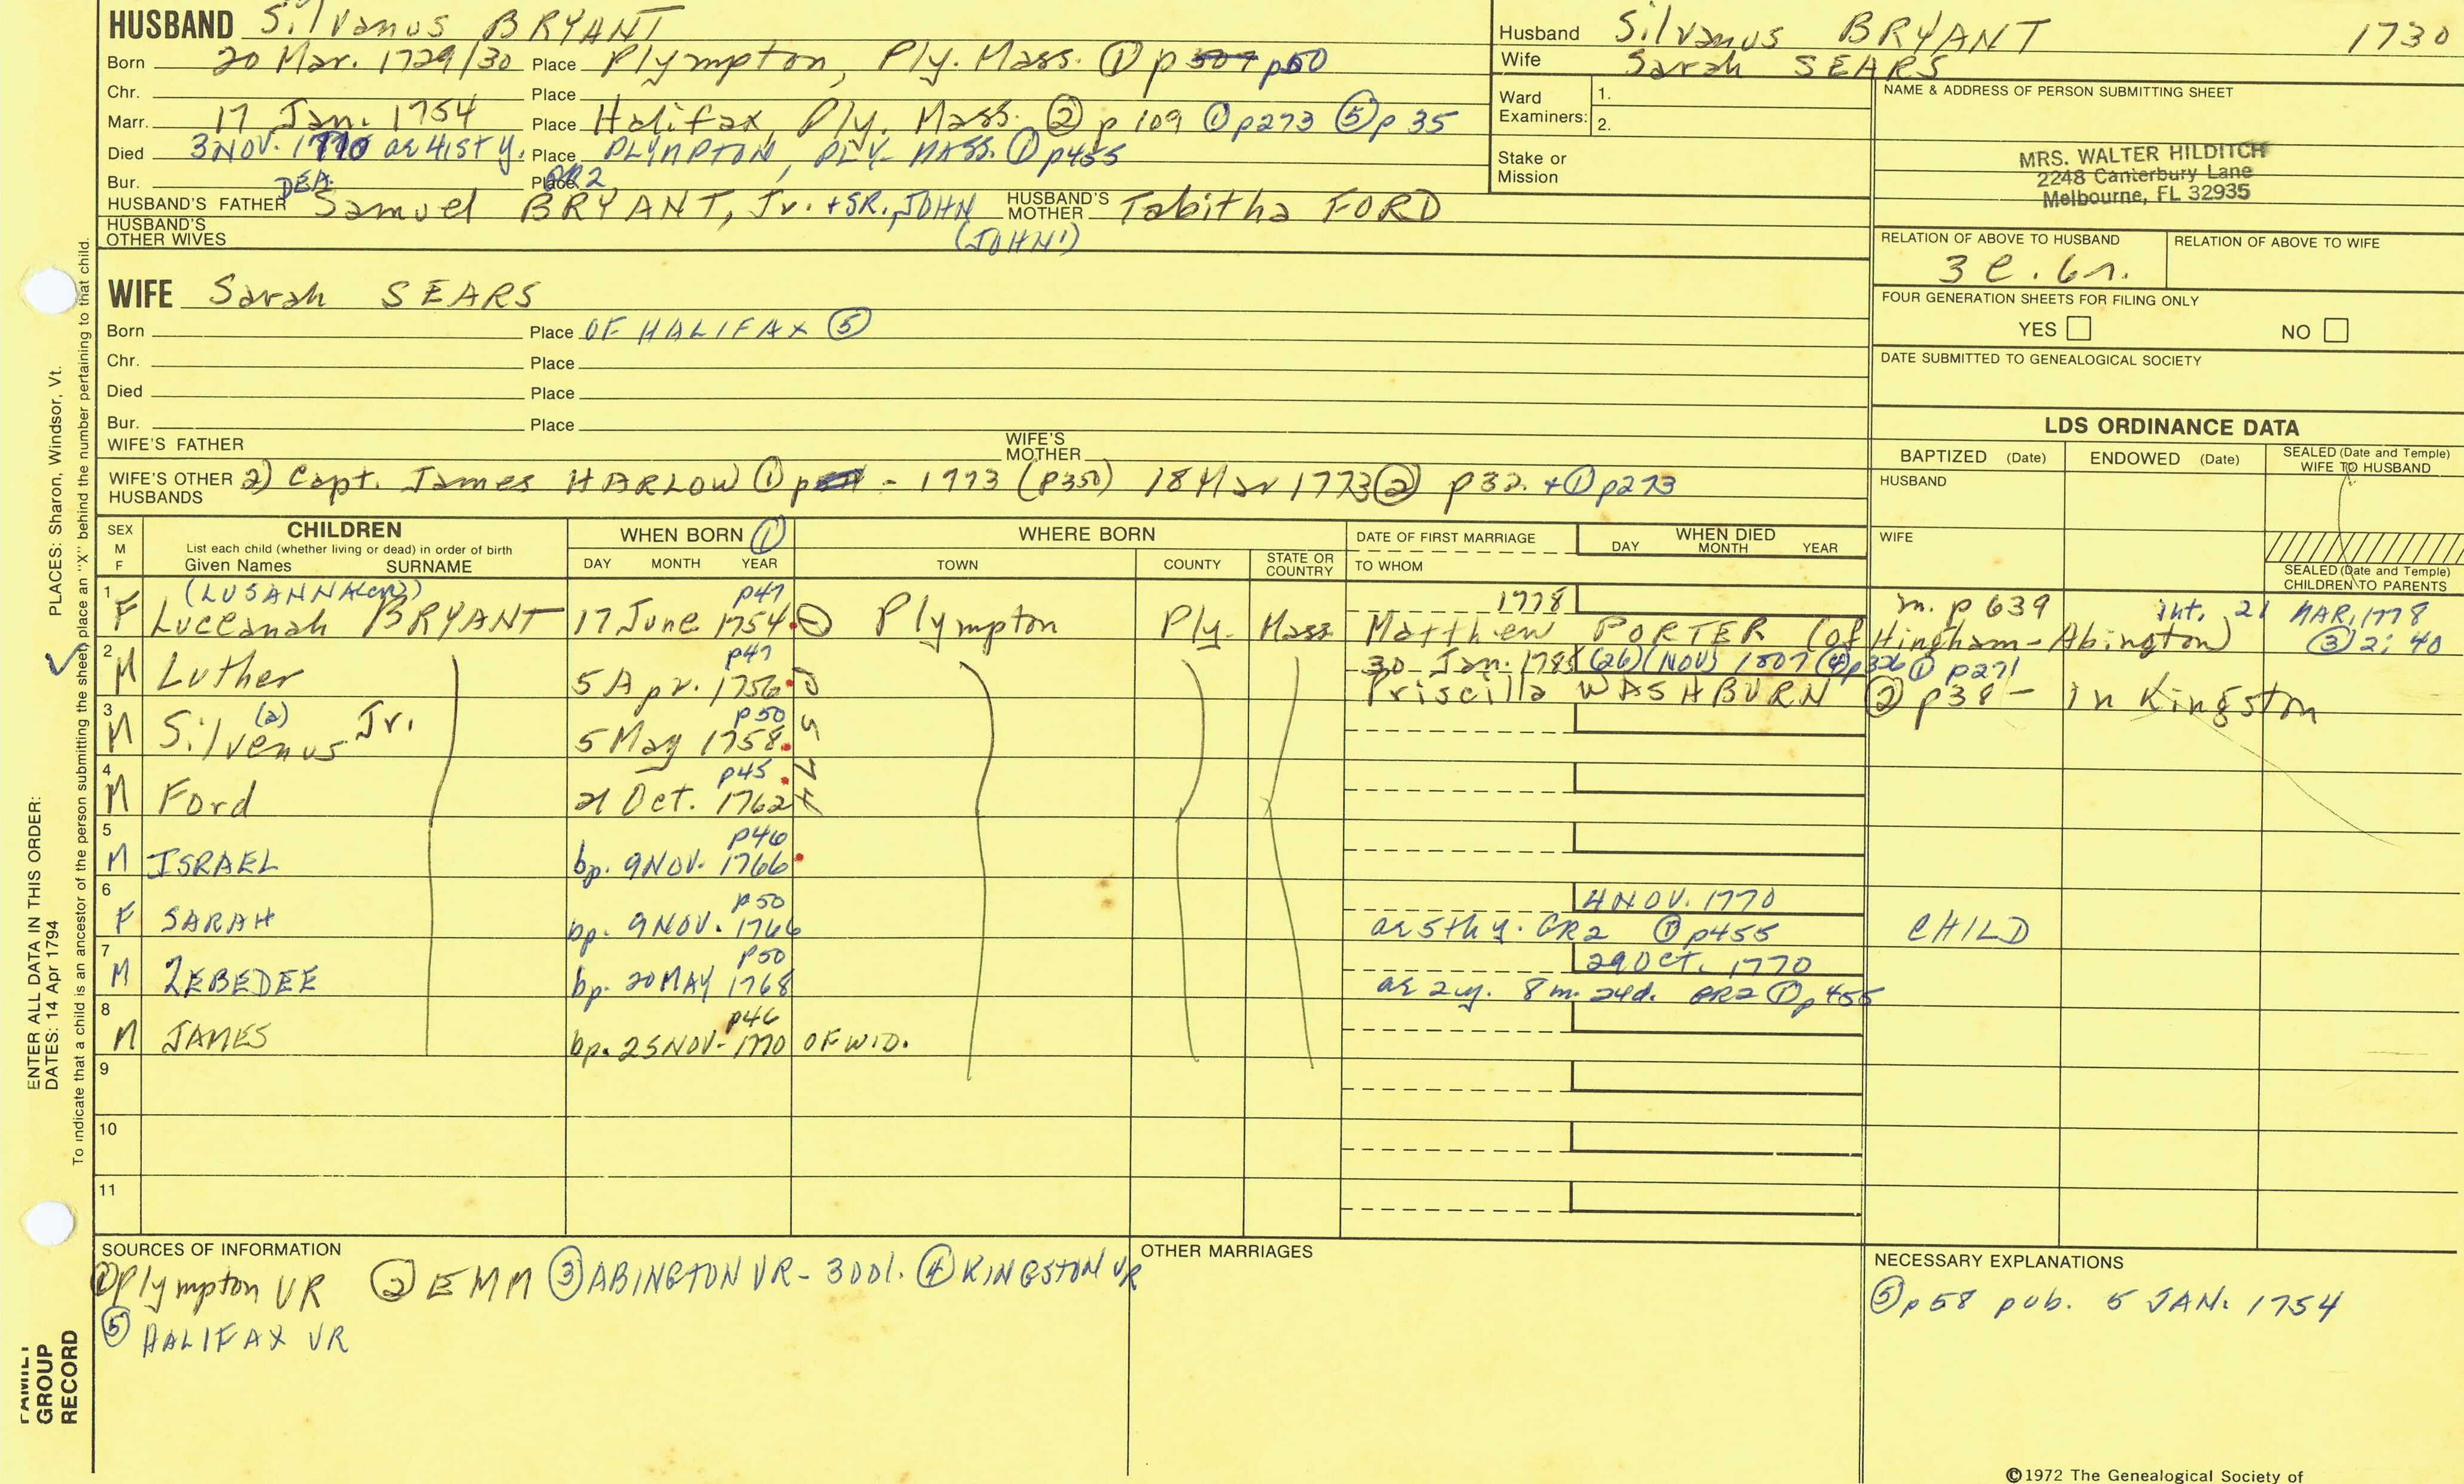 HUSBAND Silvanus BRYANT
Born 20 Mar. 1729/30 Place Plympton, Ply. Mass. ① p50
Chr. Place
Marr. 17 Jan. 1754 Place Halifax, Ply. Mass. ② p 109 ① p273 ⑤ p 35
Died 3 NOV. 1770 ae 41st y. Place PLYMPTON, PLY. MASS. ① p455
Bur. Place GR2
HUSBAND'S FATHER DEA. Samuel BRYANT, Jr. + SR., JOHN HUSBAND'S MOTHER Tabitha FORD
(JOHN¹)
HUSBAND'S OTHER WIVES
Husband Silvanus BRYANT 1730
Wife Sarah SEARS
Ward Examiners: 1.
2.
Stake or Mission
NAME & ADDRESS OF PERSON SUBMITTING SHEET
MRS. WALTER HILDITCH
2248 Canterbury Lane
Melbourne, FL 32935
RELATION OF ABOVE TO HUSBAND RELATION OF ABOVE TO WIFE
3 c. 6r.
FOUR GENERATION SHEETS FOR FILING ONLY
YES NO
DATE SUBMITTED TO GENEALOGICAL SOCIETY
WIFE Sarah SEARS
Born Place OF HALIFAX ⑤
Chr. Place
Died Place
Bur. Place
WIFE'S FATHER WIFE'S MOTHER
WIFE'S OTHER HUSBANDS 2) Capt. James HARLOW ① p - 1773 (p350) 18 Mar 1773 ② p32. + ① p273
LDS ORDINANCE DATA
BAPTIZED (Date) ENDOWED (Date) SEALED (Date and Temple) WIFE TO HUSBAND
HUSBAND
WIFE
SEALED (Date and Temple) CHILDREN TO PARENTS
SEX M F
CHILDREN
List each child (whether living or dead) in order of birth
Given Names SURNAME
WHEN BORN ①
DAY MONTH YEAR
WHERE BORN
TOWN COUNTY STATE OR COUNTRY
DATE OF FIRST MARRIAGE
TO WHOM
WHEN DIED
DAY MONTH YEAR
(LUSANNA) p47 1778 m. p 639 int. 21 MAR. 1778
1 F Luceanah BRYANT 17 June 1754 Plympton Ply. Mass Matthew PORTER (of Hingham-Abington) ③ 2: 40
p47 30 Jan. 1785 (26) (NOV) 1807 ④ p326 ① p271
2 M Luther 5 Apr. 1756 Priscilla WASHBURN ② p38 - in Kingston
(a) p50
3 M Silvenus Jr. 5 May 1758
p45
4 M Ford 21 Oct. 1762
p46
5 M ISRAEL bp. 9 NOV. 1766
p50 4 NOV. 1770
6 F SARAH bp. 9 NOV. 1766 ae 5th y. GR2 ① p455 CHILD
p50 29 Oct. 1770
7 M ZEBEDEE bp. 20 MAY 1768 ae 2 y. 8 m. 24 d. GR2 ① p 455
p46
8 M JAMES bp. 25 NOV- 1770 OF WID.
9
10
11
SOURCES OF INFORMATION
① Plympton VR ② EMM ③ ABINGTON VR - 3001. ④ KINGSTON VR
⑤ HALIFAX VR
OTHER MARRIAGES
NECESSARY EXPLANATIONS
⑤ p 58 pub. 5 JAN. 1754
©1972 The Genealogical Society of
ENTER ALL DATA IN THIS ORDER:
DATES: 14 Apr 1794 PLACES: Sharon, Windsor, Vt.
To indicate that a child is an ancestor of the person submitting the sheet, place an "X" behind the number pertaining to that child.
FAMILY GROUP RECORD